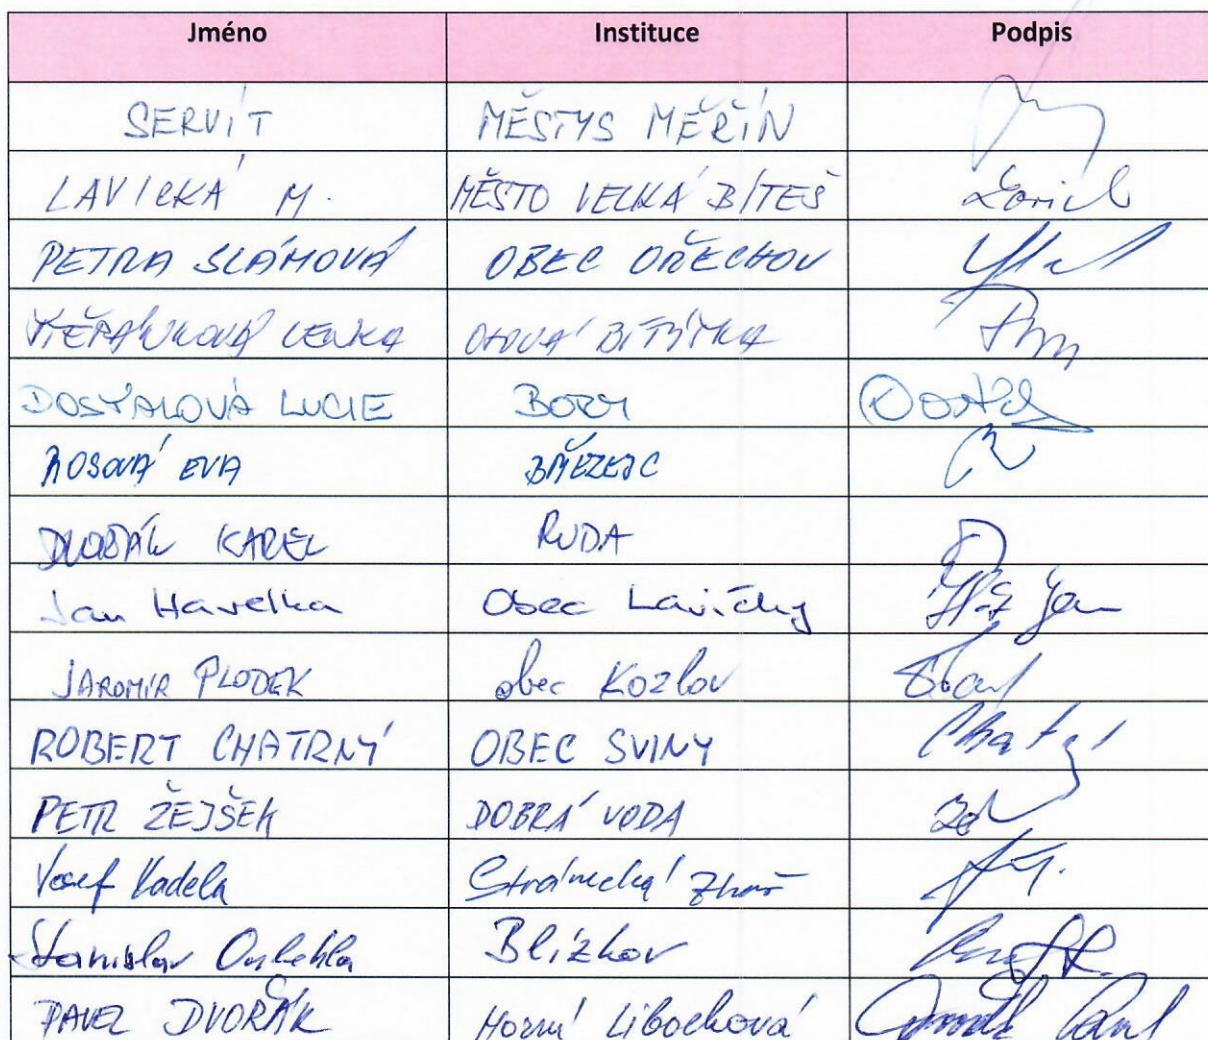 Jméno Instituce Podpis
SERVÍT MĚSTYS MĚŘÍN
LAVICKÁ M. MĚSTO VELKÁ BÍTEŠ
PETRA SLÁMOVÁ OBEC OŘECHOV
LENKA
DOSTALOVÁ LUCIE BORY
ROSOVÁ EVA BŘEZEJC
DVOŘÁK KAREL RUDA
Jan Havelka Obec Lavičky
JAROMÍR PLODEK obec Kozlov
ROBERT CHATRNÝ OBEC SVINY
PETR ŽEJŠEK DOBRÁ VODA
Josef Kadela Stránecká Zhoř
Stanislav Blízkov
PAVEL DVOŘÁK Horní Libochová